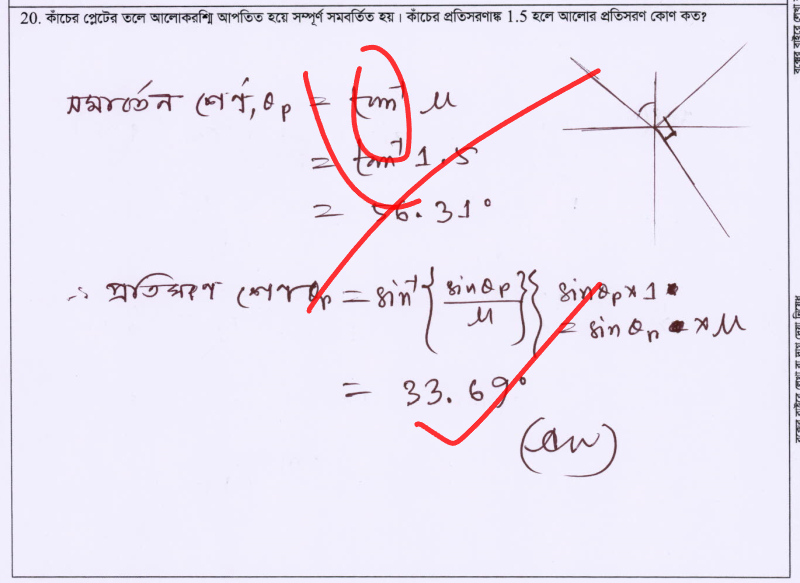 20. কাঁচের প্লেটের তলে আলোকরশ্মি আপতিত হয়ে সম্পূর্ণ সমবর্তিত হয়। কাঁচের প্রতিসরণাঙ্ক 1.5 হলে আলোর প্রতিসরণ কোণ কত?
সমবর্তন কোণ, θp = tan⁻¹ μ
= tan⁻¹ 1.5
= 56.31°
∴ প্রতিসরণ কোণ θr = sin⁻¹ { sinθp / μ } { sinθp × 1
= sinθr × μ
= 33.69°
(Ans)